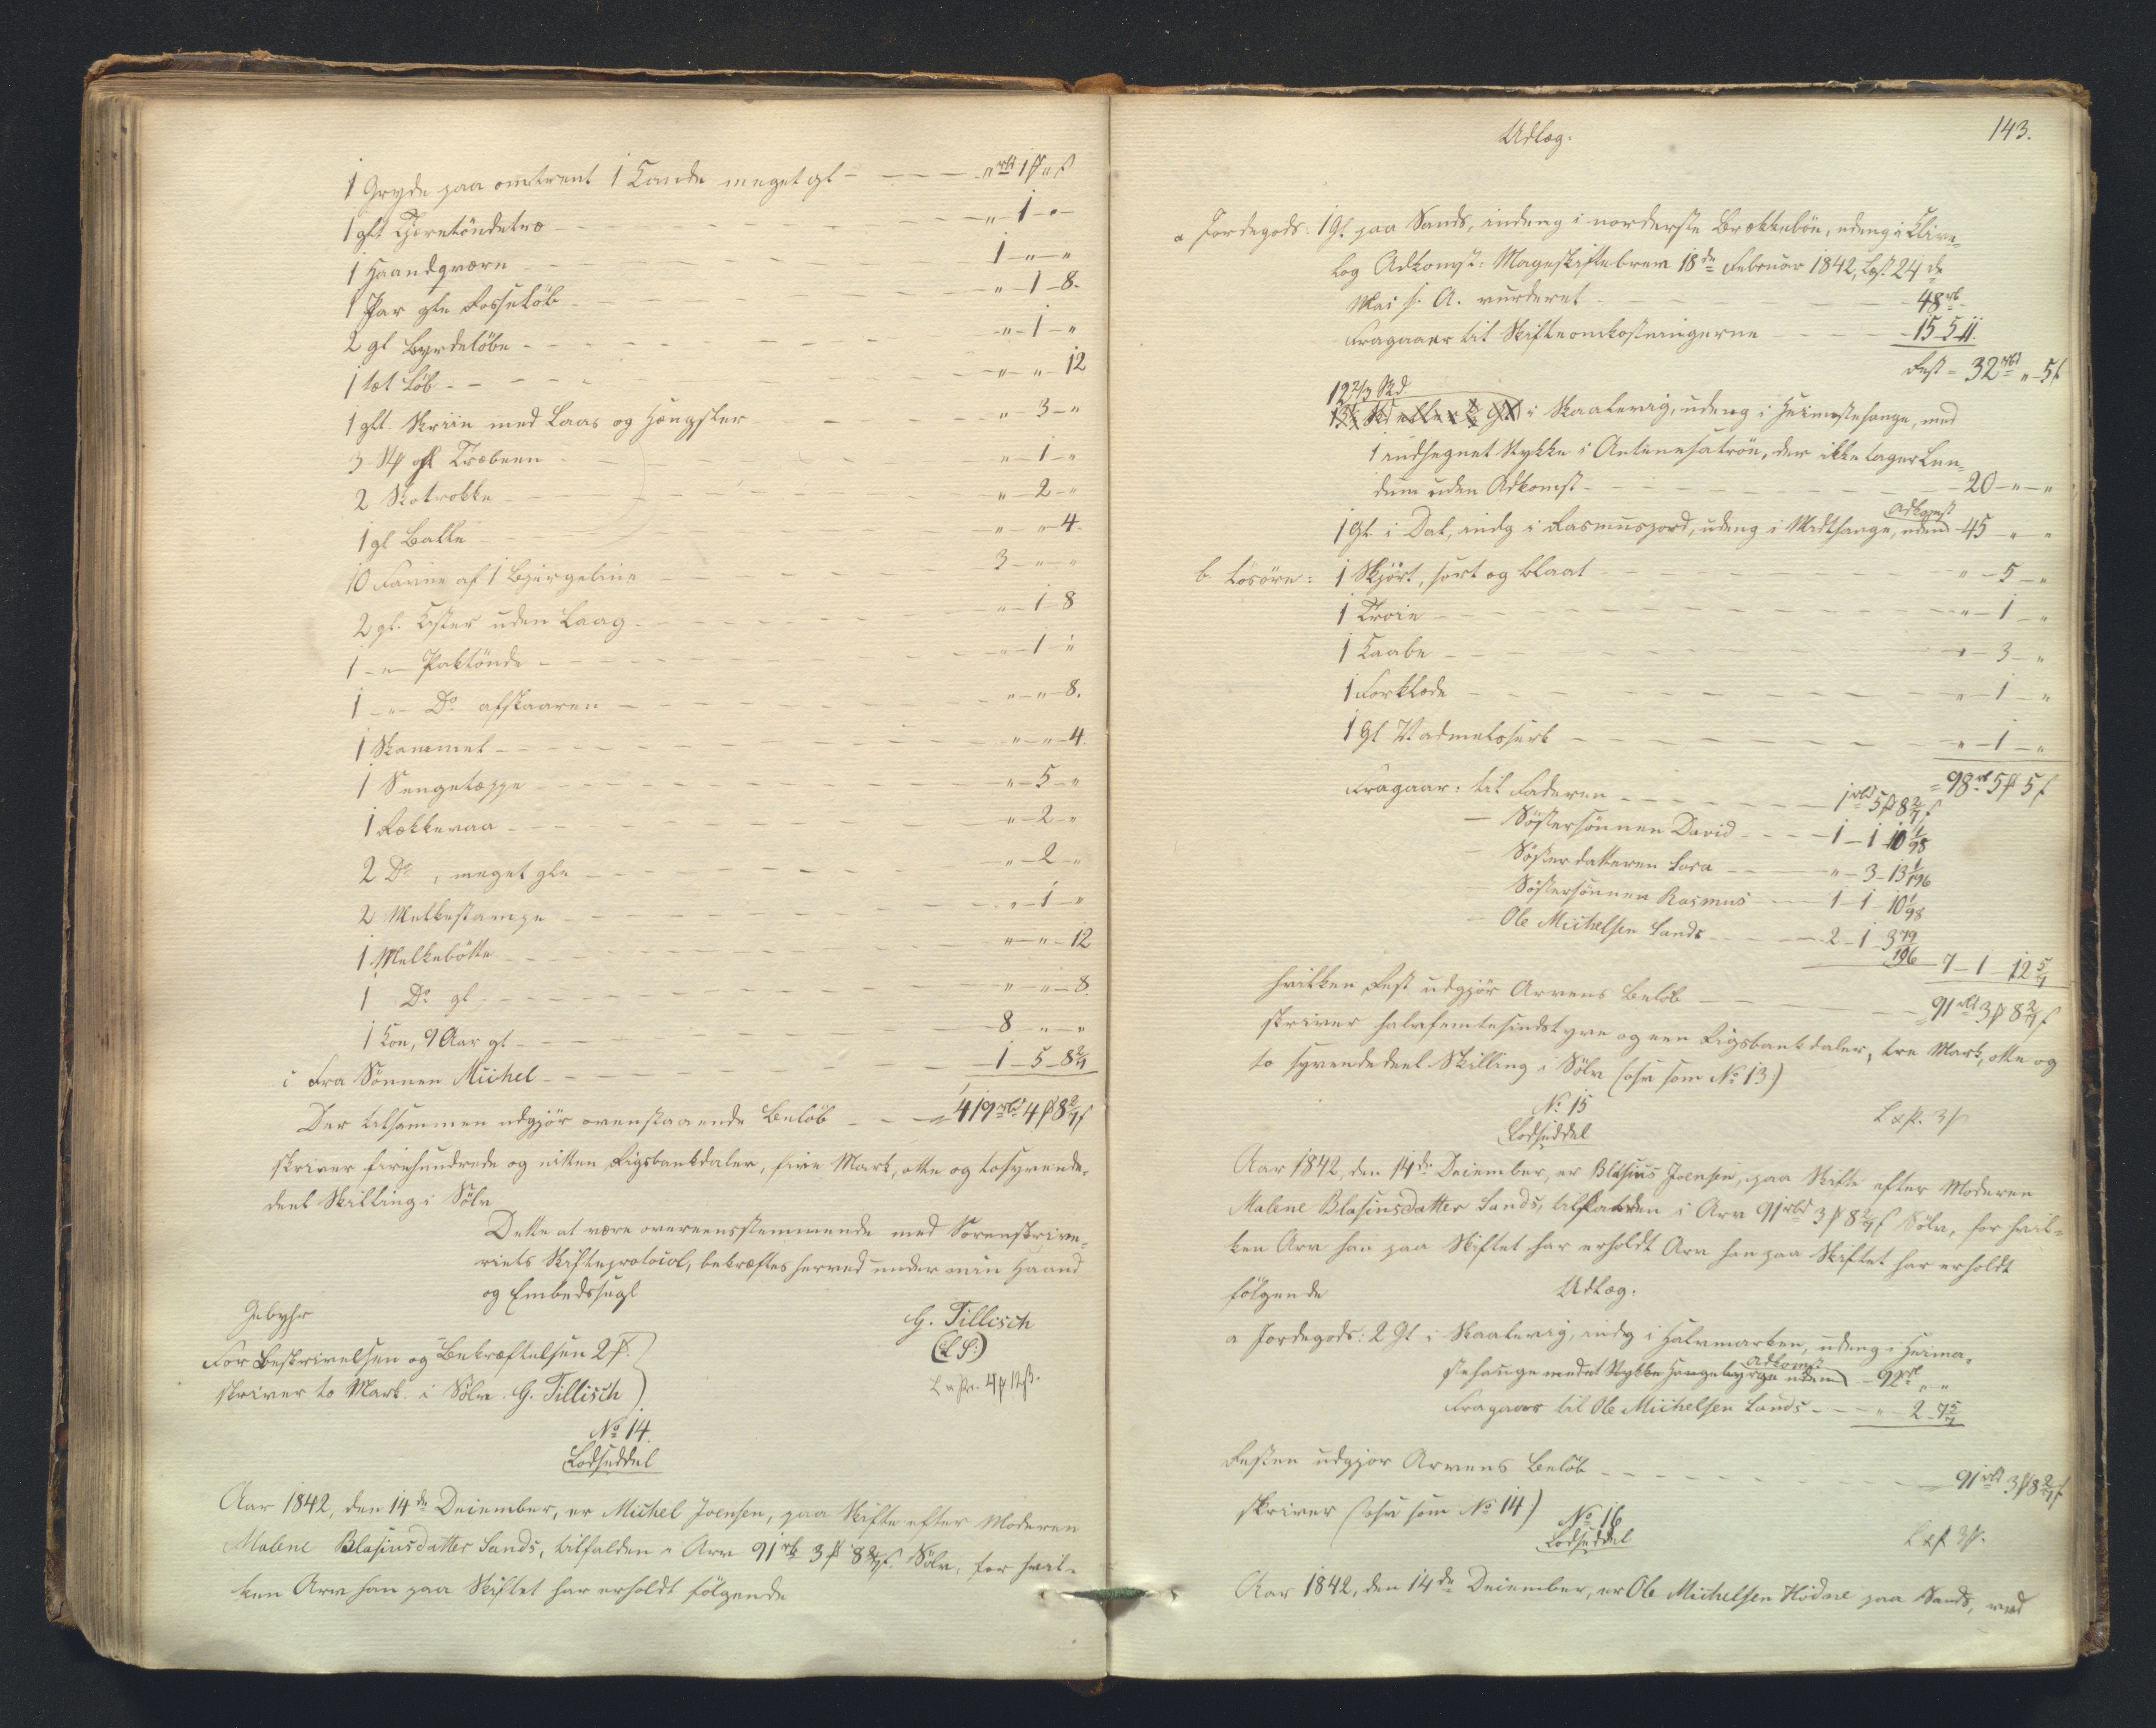 1 Gryde paa omtrent 1 Kande meget gl - - - „ rbd 1 ꝥ „ ſ
1 glt Tjæretøndetræ - - - „ - 1 - „
1 Haandqværn - - - 1 - „ - „
1 Par gle - - - „ - 1 - 8.
2 gl Byrdeløbe - - - „ - 1 - „
1 læt Løb - - - „ - „ - 12
1 glt. Skriin med Laas og Hængsler - - - „ - 3 - „
3 gl - - - „ - 1 - „
2 Skotrokke - - - „ - 2 - „
1 gl Balle - - - „ - „ - 4.
10 Favne af 1 - - - 3 - „ - „
2 gl. Kister uden Laag - - - „ - 1 - 8
1 - „ - Paktønde - - - „ - 1 - „
1 - „ - Do afskaaren - - - „ - „ - 8.
1 Skammel - - - „ - „ - 4.
1 Sengetæppe - - - „ - 5 - „
1 - - - „ - 2 - „
2 Do, meget gle - - - „ - 2 - „
2 Melkestampe - - - „ - 1 - „
1 Melkebøtte - - - „ - „ - 12
1 Do gl - - - „ - „ - 8
1 Koe, 9 Aar gl - - - 8 - „ - „
i Fra Sønnen Michel - - - 1 - 5 - 8 2/7
Der tilsammen udgjør ovenstaaende Beløb - - = 419 rbd 4 ꝥ 8 2/7 ſ
skriver firehundrede og nitten Rigsbankdaler, fire Mark, otte og tosyvende-
deel Skilling i Sølv
Dette at være overeensstemmende med Sorenskrive-
riets Skifteprotocol, bekræftes herved under min Haand
og Embedssegl
Gebyhr
G. Tillisch
(L. S.)
For Beskrivelsen og Bekræftelsen 2 ꝥ.
skriver to Mark i Sølv. G. Tillisch
No 14.
Lodseddel
Aar 1842, den 14de December, er Michel Joensen, paa Skifte efter Moderen
Malene Blasiusdatter Sands, tilfalden i Arv 91 rbd 3 ꝥ 8 2/7 ſ. Sølv, for hvil-
ken Arv han paa Skiftet har erholdt følgende
143.
Udlæg:
a Jordegods: 1 Gl. paa Sands, indeng i norderste Brekkebøe, udeng i Klive-
log Adkomst: Mageskiftebrev 18de Februar 1842, læst 24de
Mai s. A. vurderet - - 48 rb
Fragaaer til Skifteomkostningerne - - - 15 - 5 - 11.
Rest = 32 rbd „ - 5 ſ
12 2/3 Sk
i Skaalevig, udeng i Heimestehauge, med
1 indhegnet Stykke i Antunesatrøe, der ikke tager Lun-
dum uden Adkomst - - - 20 - „ - „
1 Gl. i Dal, indg i Rasmusjord, udeng i Midthauge, uden Adkomst - 45 - „ - „
b. Løsøre: 1 Skjørt, sort og blaat - - - „ - 5 - „
1 Trøie - - - „ - 1 - „
1 Kaabe - - - „ - 3 - „
1 Forklæde - - - „ - 1 - „
1 Gl Vadmelsserk - - - „ - 1 - „
= 98 rb 5 ꝥ 5 ſ
Fragaar: til Faderen - - - 1 rbd 5 ꝥ 8 2/7 ſ
— Søstersønnen David - - - 1 - 1 - 10 1/98
— Søsterdatteren Sara - - - „ - 3 - 13 1/196
— Søstersønnen Rasmus - - 1 - 1 - 10 1/98
— Ole Michelsen Sands - - - 2 - 1 - 3 79/196
7 - 1 - 12 5/7
hvilken Rest udgjør Arvens Beløb - - - = 91 rbd 3 ꝥ 8 2/7 ſ
skriver halvfemtesindstyve og een Rigsbankdaler, tre Mark, otte og
to syvendedeel Skilling i Sølv (osv som No 13)
No 15
Lodseddel
Aar 1842, den 14de December, er Blasius Joensen, paa Skifte efter Moderen
Malene Blasiusdatter Sands, tilfalden i Arv 91 rbd 3 ꝥ 8 2/7 ſ Sølv, for hvil-
ken Arv han paa Skiftet har erholdt Arv han paa Skiftet har erholdt
følgende Udlæg:
a Jordegods: 2 Gl i Skaalevig, indg i Halvmarken, udeng i Heime-
stehauge med et Stykke uden Adkomst - 92 rb „ „
Fragaar til Ole Michelsen Sands - - - „ - 2 - 7 5/7
Resten udgjør Arvens Beløb - - - 91 rbd 3 ꝥ 8 2/7 ſ
skriver (osv som No 14)
No 16
Lodseddel
Aar 1842, den 14de December, er Ole Michelsen Hodne paa Sands, ved